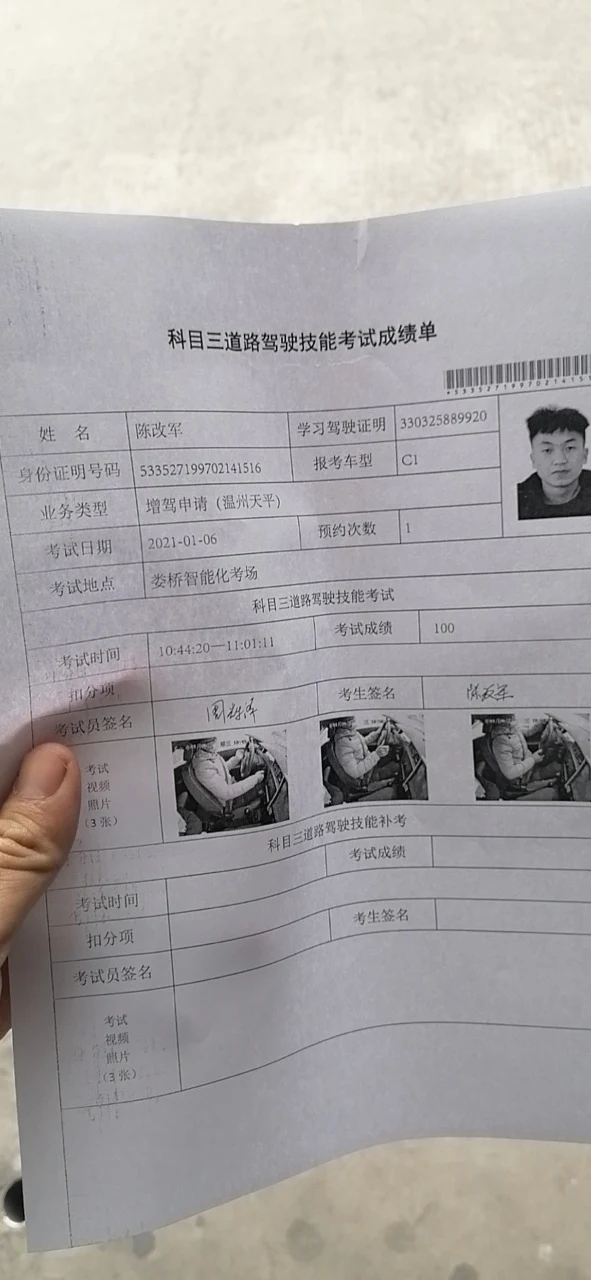 科目三道路驾驶技能考试成绩单
姓 名 陈改军 学习驾驶证明 330325889920
身份证明号码 533527199702141516 报考车型 C1
业务类型 增驾申请（温州天平）
考试日期 2021-01-06 预约次数 1
考试地点 娄桥智能化考场
科目三道路驾驶技能考试
考试时间 10:44:20—11:01:11 考试成绩 100
扣分项
考试员签名 考生签名 陈改军
考试
视频
照片
（3 张）
科目三道路驾驶技能补考
考试时间 考试成绩
扣分项
考试员签名 考生签名
考试
视频
照片
（3 张）